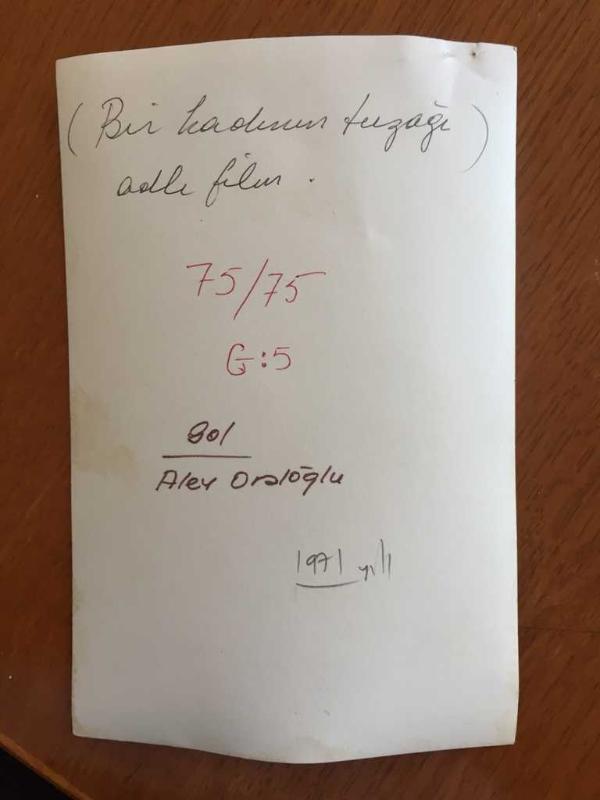 (Bir kadının tuzağı)
adlı film.
75/75
G:5
Sol
Alev Oraloğlu
1971 yılı